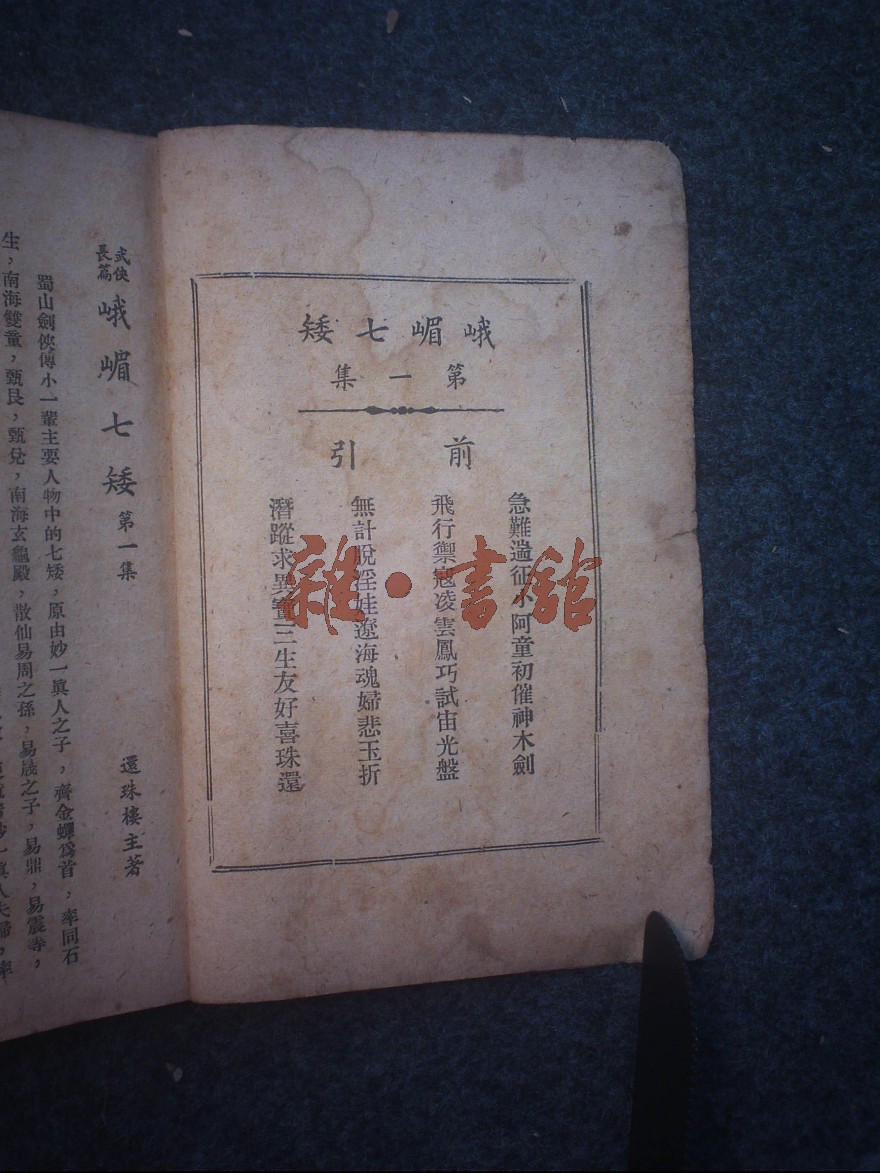 峨嵋七矮
第一集
前引
急難遄征小阿童初催神木劍
飛行禦寇凌雲鳳巧試宙光盤
無計脫淫娃遼海魂歸悲玉折
潛蹤求異寶三生友好喜珠還
雜·書館
武俠長篇
峨嵋七矮 第一集
還珠樓主著
蜀山劍俠傳小一輩主要人物中的七矮，原由妙一眞人之子，齊金蟬爲首，率同石
生，南海雙童，甄艮，甄兌，南海玄龜殿，散仙易周之孫，易晟之子，易鼎，易震等，